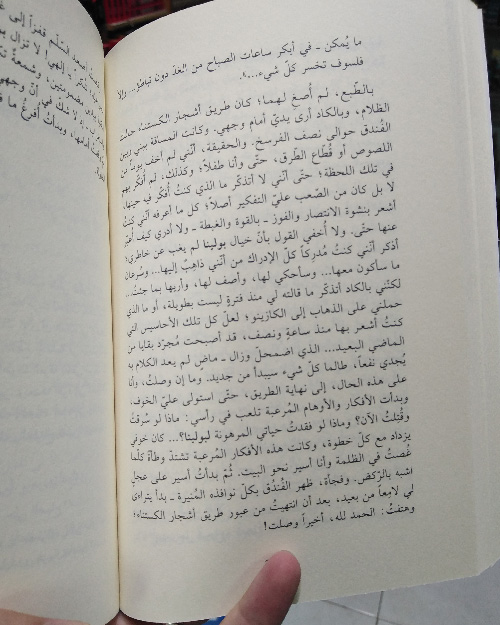 ما يُمكن ـ في أبكر ساعات الصباح من الغد دون تباطؤ... وإلا
فلسوف تخسر كلّ شيء...».
بالطّبع، لم أُصغِ لهما؛ كان طريق أشجار الكستناء حالك
الظلام، وبالكاد أرى يديّ أمام وجهي. وكانت المسافة بيني وبين
الفُندق حوالى نصف الفرسخ. والحقيقة، أنّني لم أخف يوماً من
اللصوص أو قُطّاع الطّرق، حتّى وأنا طفلاً؛ وكذلك، لم أُفكّر بهم
في تلك اللحظة؛ حتّى أنّني لا أتذكّر ما الذي كنتُ أُفكّر فيه حينها،
لا بل كان من الصّعب عليّ التفكير أصلاً؛ كل ما أعرفه أنّني كنتُ
أشعر بنشوة الانتصار والفوز ـ بالقوة والغبطة ـ ولا أدري كيف أُعبّر
عنها حتّى. ولا أُخفي القول بأنّ خيال بولينا لم يغب عن خاطري؛
أذكر أنّني كنتُ مُدركاً كلّ الإدراك من أنّني ذاهبٌ إليها... وسُرعان
ما سأكون معها... وسأحكي لها، وأصف لها، وأُريها بما جئتُ...
لكنّني بالكاد أتذكّر ما قالته لي منذ فترةٍ ليست بطويلة، أو ما الذي
حملني على الذهاب إلى الكازينو؛ لعلّ كل تلك الأحاسيس التي
كنتُ أشعر بها منذ ساعةٍ ونصف، قد أصبحت مُجرّد بقايا من
الماضي البعيد... الذي اضمحلّ وزال ـ ماضٍ لم يعد الكلام به
يُجدي نفعاً، طالما كلّ شيء سيبدأ من جديد. وما إن وصلتُ، وأنا
على هذه الحال، إلى نهاية الطريق، حتّى استولى عليّ الخوف.
وبدأت الأفكار والأوهام المُرعبة تلعب في رأسي: ماذا لو سُرقتُ
وقُتِلتُ الآن؟ وماذا لو فقدتُ حياتي المرهونة لبولينا؟... كان خوفي
يزداد مع كلّ خطوة، وكانت هذه الأفكار المُرعبة تشتدّ وطأةً كلّما
غُصتُ في الظلمة وأنا أسير نحو البيت. ثُمّ بدأتُ أسير على عجلٍ
أشبه بالرّكض. وفجأة، ظهر الفُندُق بكلّ نوافذه المُنيرة ـ بدأ يتراءى
لي لامعاً من بعيد، بعد أن انتهيتُ من عبور طريق أشجار الكستناء؛
وهتفتُ: الحمد لله، أخيراً وصلت!